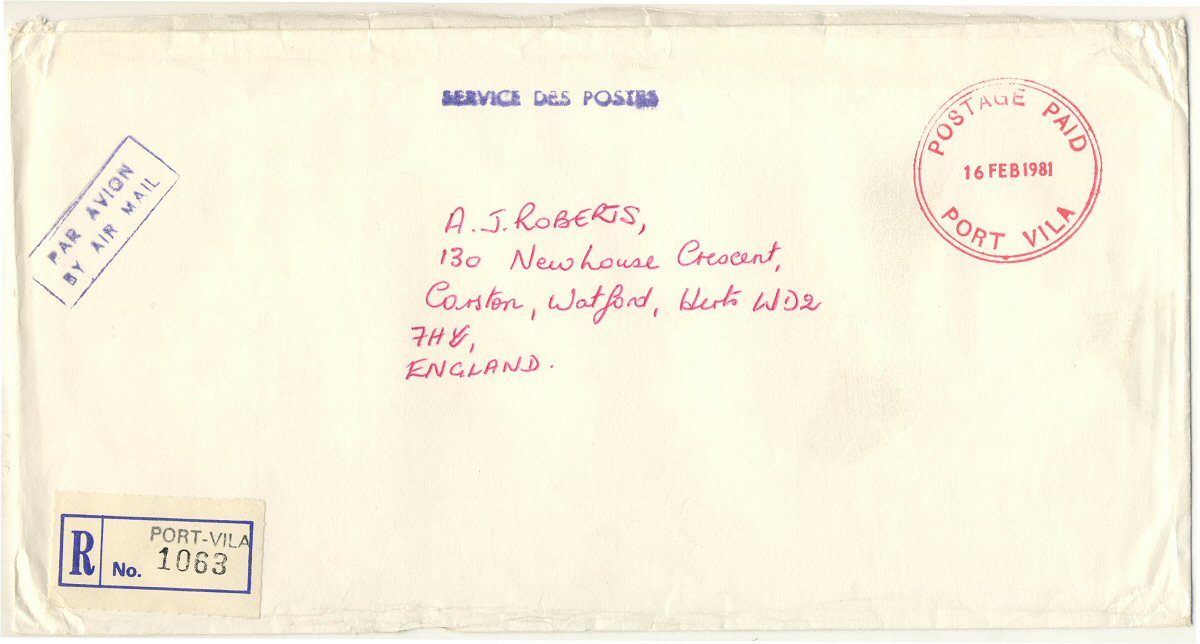 SERVICE DES POSTES
POSTAGE PAID
16 FEB 1981
PORT VILA
PAR AVION
BY AIR MAIL
A. J. ROBERTS,
130 Newhouse Crescent,
Garston, Watford, Herts WD2
7HY,
ENGLAND.
R
PORT-VILA
No. 1063